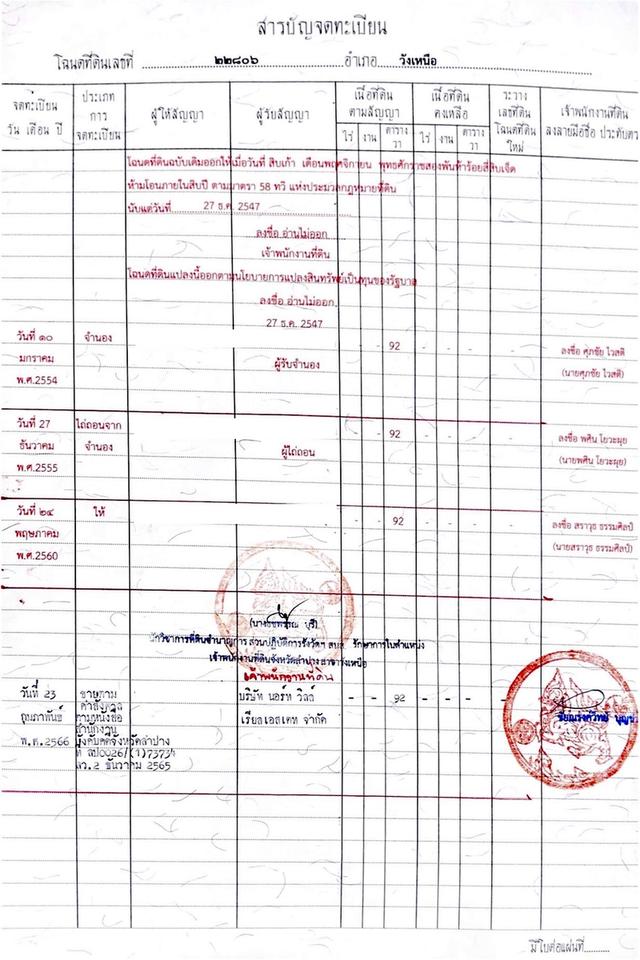 สารบัญจดทะเบียน
โฉนดที่ดินเลขที่ ๒๒๘๐๖ อำเภอ วังเหนือ
จดทะเบียน วัน เดือน ปี
ประเภท การ จดทะเบียน
ผู้ให้สัญญา
ผู้รับสัญญา
เนื้อที่ดิน ตามสัญญา
ไร่ งาน ตาราง วา
เนื้อที่ดิน คงเหลือ
ไร่ งาน ตาราง วา
ระวาง เลขที่ดิน โฉนดที่ดิน ใหม่
เจ้าพนักงานที่ดิน ลงลายมือชื่อ ประทับตรา
โฉนดที่ดินฉบับเดิมออกให้เมื่อวันที่ สิบเก้า เดือนพฤศจิกายน พุทธศักราชสองพันห้าร้อยสี่สิบเจ็ด
ห้ามโอนภายในสิบปี ตามมาตรา 58 ทวิ แห่งประมวลกฎหมายที่ดิน
นับแต่วันที่ 27 ธ.ค. 2547
ลงชื่อ อ่านไม่ออก
เจ้าพนักงานที่ดิน
โฉนดที่ดินแปลงนี้ออกตามนโยบายการแปลงสินทรัพย์เป็นทุนของรัฐบาล
ลงชื่อ อ่านไม่ออก
27 ธ.ค. 2547
วันที่ ๑๐ จำนอง - - 92 - - - - ลงชื่อ ศุภชัย ไวสดี
มกราคม ผู้รับจำนอง (นายศุภชัย ไวสดี)
พ.ศ.2554
วันที่ 27 ไถ่ถอนจาก - - 92 - - - - ลงชื่อ พศิน โยวะผุย
ธันวาคม จำนอง ผู้ไถ่ถอน (นายพศิน โยวะผุย)
พ.ศ.2555
วันที่ ๒๔ ให้ - - 92 - - - - ลงชื่อ สราวุธ ธรรมศิลป์
พฤษภาคม (นายสราวุธ ธรรมศิลป์)
พ.ศ.2560
นักวิชาการที่ดินชำนาญการ ส่วนปฏิบัติการรังวัดฯ สมส. รักษาการในตำแหน่ง
เจ้าพนักงานที่ดินจังหวัดลำปาง สาขาวังเหนือ
เจ้าพนักงานที่ดิน
วันที่ 23 ขายตาม บริษัท นอร์ท วิลล์ - - 92 - - - -
กุมภาพันธ์ ตามหนังสือ เรียลเอสเตท จำกัด
สำนักงาน
พ.ศ.2566 บังคับคดีจังหวัดลำปาง
ที่ ลป0026/(1)7373
ลว.2 ธันวาคม 2565
มีใบต่อแผ่นที่